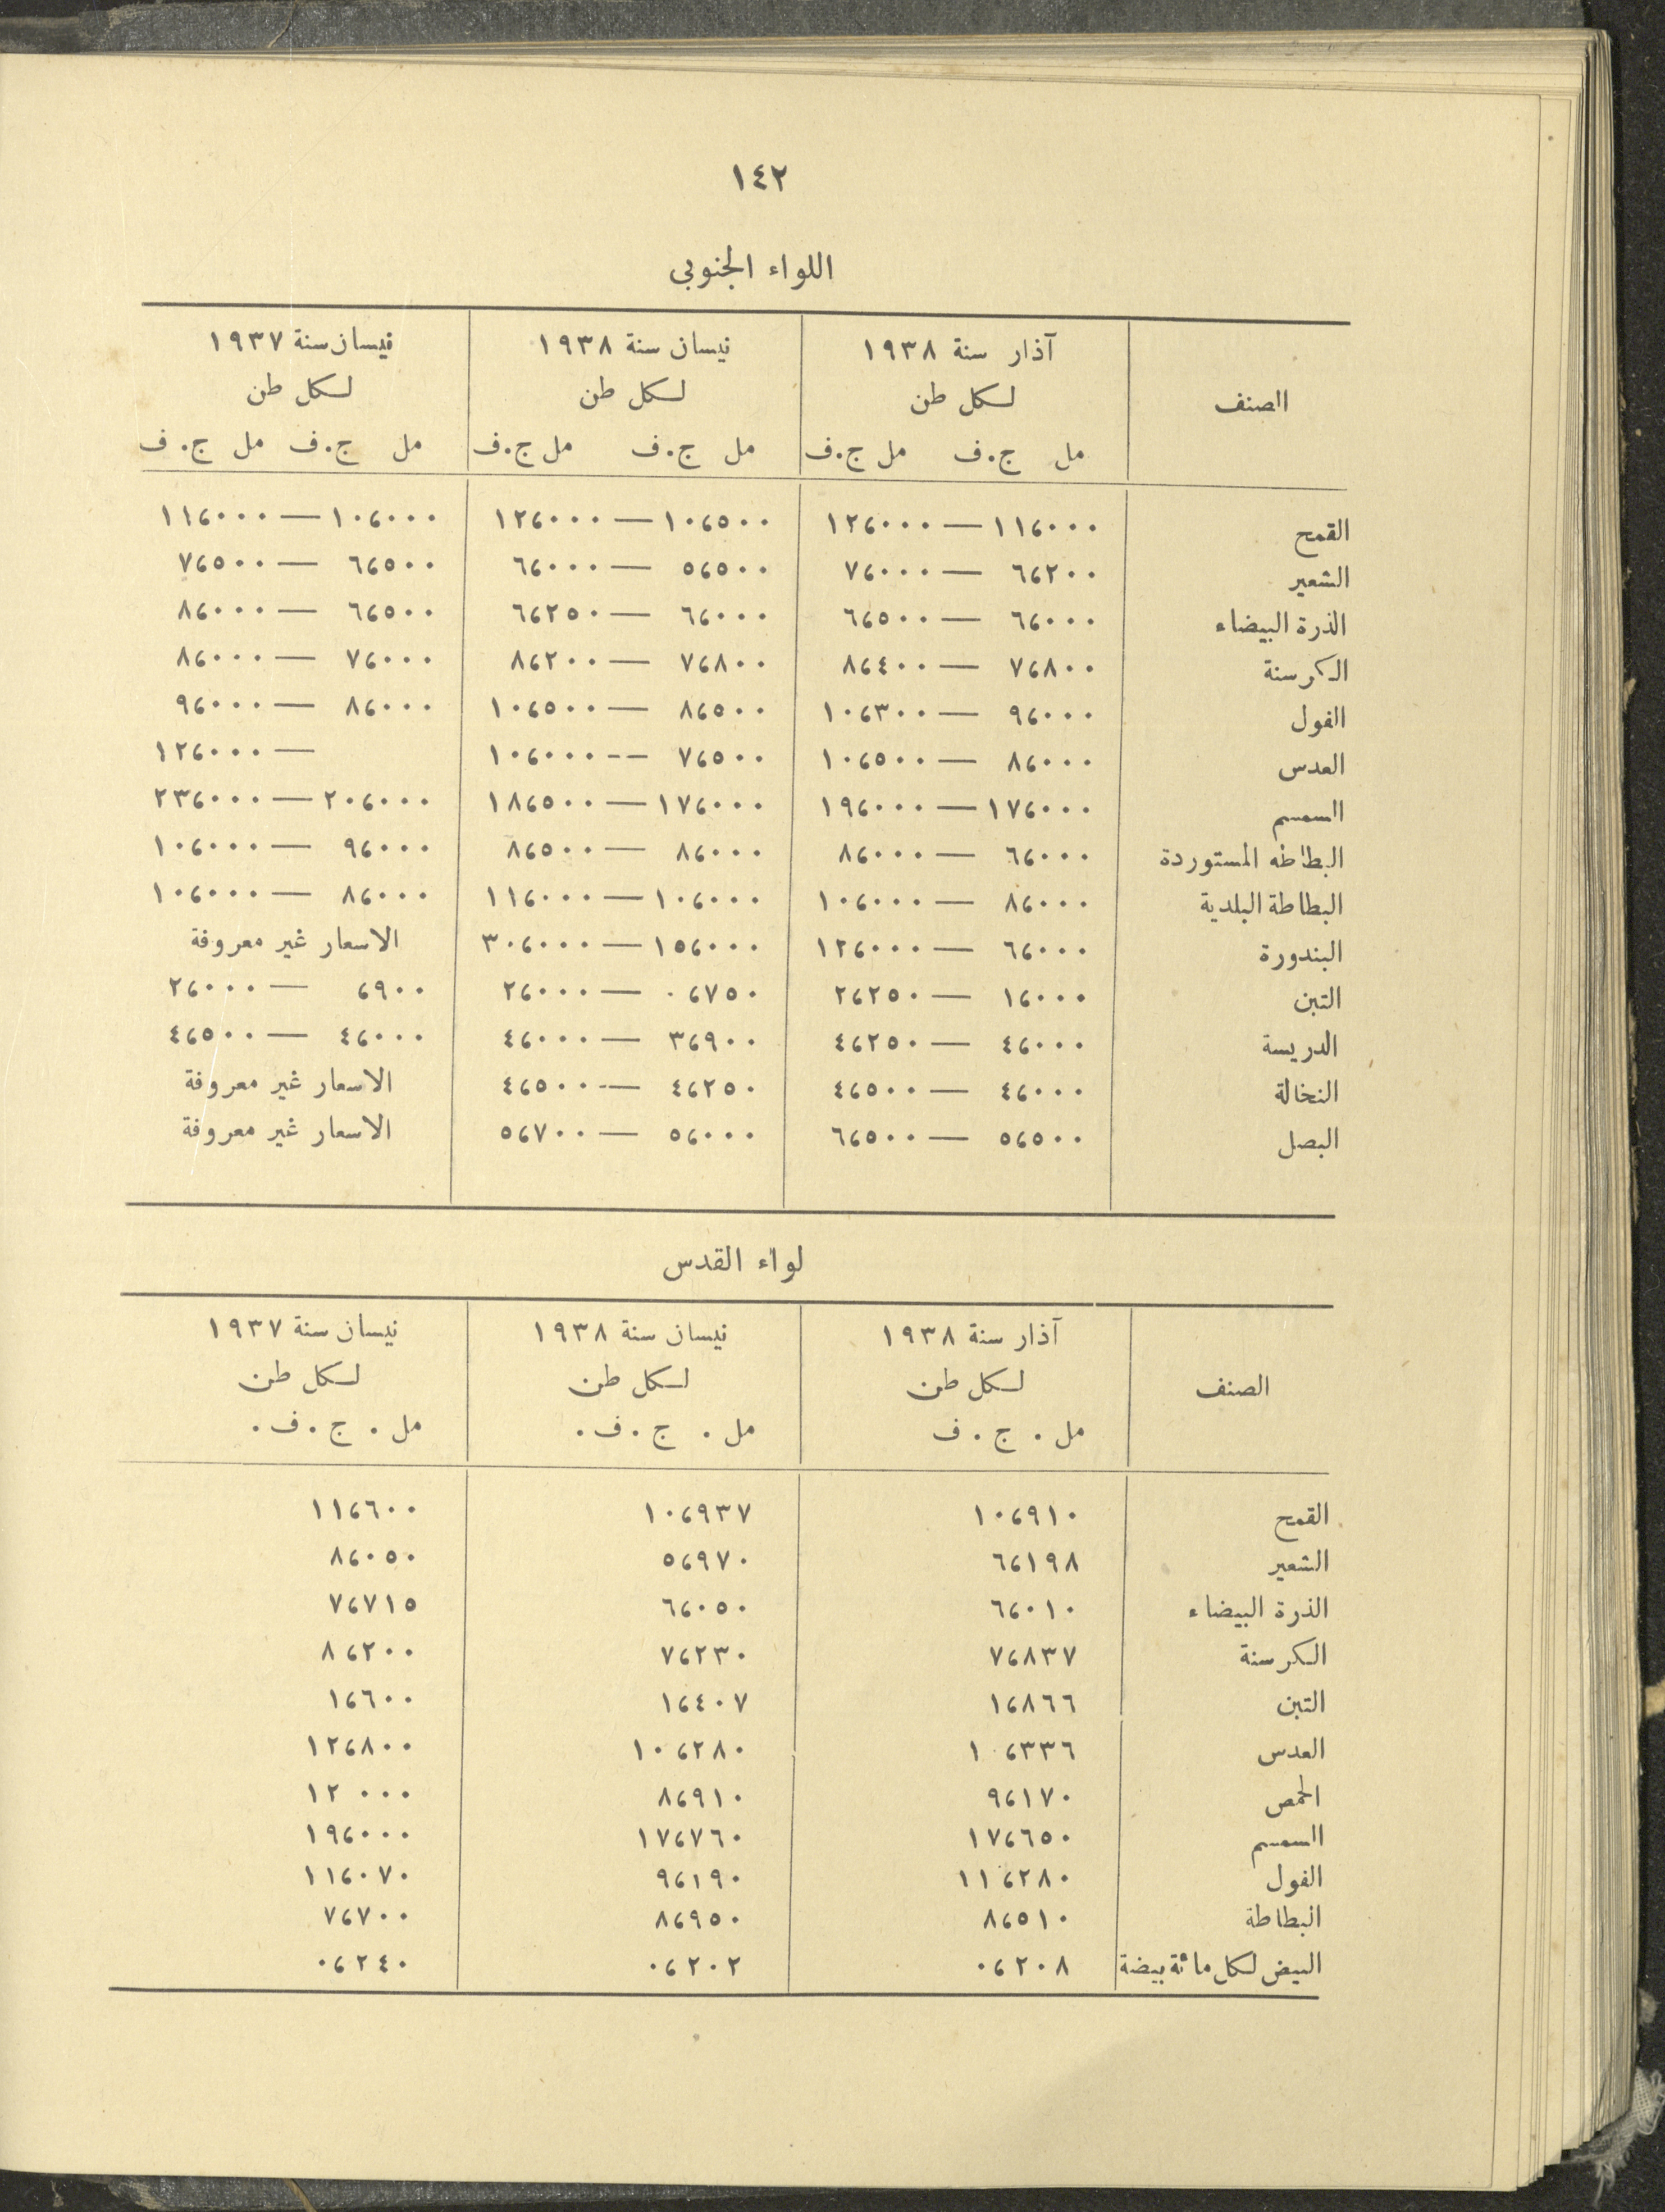 ١٤٢
اللواء الجنوبي
الصنف آذار سنة ١٩٣٨ نيسان سنة ١٩٣٨ نيسان سنة ١٩٣٧
لكل طن لكل طن لكل طن
مل ج.ف مل ج.ف مل ج.ف مل ج.ف مل ج.ف مل ج.ف
القمح ١١،٠٠٠ — ١٢،٠٠٠ ١٠،٥٠٠ — ١٢،٠٠٠ ١٠،٠٠٠ — ١١،٠٠٠
الشعير ٦،٢٠٠ — ٧،٠٠٠ ٥،٥٠٠ — ٦،٠٠٠ ٦،٥٠٠ — ٧،٥٠٠
الذرة البيضاء ٦،٠٠٠ — ٦،٥٠٠ ٦،٠٠٠ — ٦،٢٥٠ ٦،٥٠٠ — ٨،٠٠٠
الكرسنة ٧،٨٠٠ — ٨،٤٠٠ ٧،٨٠٠ — ٨،٢٠٠ ٧،٠٠٠ — ٨،٠٠٠
الفول ٩،٠٠٠ — ١٠،٣٠٠ ٨،٥٠٠ — ١٠،٥٠٠ ٨،٠٠٠ — ٩،٠٠٠
العدس ٨،٠٠٠ — ١٠،٥٠٠ ٧،٥٠٠ -- ١٠،٠٠٠ — ١٢،٠٠٠
السمسم ١٧،٠٠٠ — ١٩،٠٠٠ ١٧،٠٠٠ — ١٨،٥٠٠ ٢٠،٠٠٠ — ٢٣،٠٠٠
البطاطه المستوردة ٦،٠٠٠ — ٨،٠٠٠ ٨،٠٠٠ — ٨،٥٠٠ ٩،٠٠٠ — ١٠،٠٠٠
البطاطة البلدية ٨،٠٠٠ — ١٠،٠٠٠ ١٠،٠٠٠ — ١١،٠٠٠ ٨،٠٠٠ — ١٠،٠٠٠
البندورة ٦،٠٠٠ — ١٢،٠٠٠ ١٥،٠٠٠ — ٣٠،٠٠٠ الاسعار غير معروفة
التبن ١،٠٠٠ — ٢،٢٥٠ ٠،٧٥٠ — ٢،٠٠٠ ،٩٠٠ — ٢،٠٠٠
الدريسة ٤،٠٠٠ — ٤،٢٥٠ ٣،٩٠٠ — ٤،٠٠٠ ٤،٠٠٠ — ٤،٥٠٠
النخالة ٤،٠٠٠ — ٤،٥٠٠ ٤،٢٥٠ — ٤،٥٠٠ الاسعار غير معروفة
البصل ٥،٥٠٠ — ٦،٥٠٠ ٥،٠٠٠ — ٥،٧٠٠ الاسعار غير معروفة
لواء القدس
الصنف آذار سنة ١٩٣٨ نيسان سنة ١٩٣٨ نيسان سنة ١٩٣٧
لكل طن لكل طن لكل طن
مل . ج . ف مل . ج . ف . مل . ج . ف .
القمح ١٠،٩١٠ ١٠،٩٣٧ ١١،٦٠٠
الشعير ٦،١٩٨ ٥،٩٧٠ ٨،٠٥٠
الذرة البيضاء ٦،٠١٠ ٦،٠٥٠ ٧،٧١٥
الكرسنة ٧،٨٣٧ ٧،٢٣٠ ٨،٢٠٠
التبن ١،٨٦٦ ١،٤٠٧ ١،٦٠٠
العدس ١٠،٣٣٦ ١٠،٢٨٠ ١٢،٨٠٠
الحمص ٩،١٧٠ ٨،٩١٠ ١٢ ٠٠٠
السمسم ١٧،٦٥٠ ١٧،٧٦٠ ١٩،٠٠٠
الفول ١١،٢٨٠ ٩،١٩٠ ١١،٠٧٠
البطاطة ٨،٥١٠ ٨،٩٥٠ ٧،٧٠٠
البيض لكل مائة بيضة ٠،٢٠٨ ٠،٢٠٢ ٠،٢٤٠